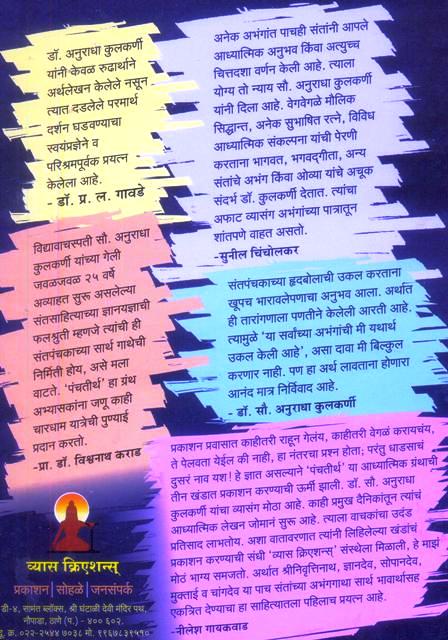 डॉ. अनुराधा कुलकर्णी
यांनी केवळ रुढार्थाने
अर्थलेखन केलेले नसून
त्यात दडलेले परमार्थ
दर्शन घडवण्याचा
स्वयंप्रज्ञेने व
परिश्रमपूर्वक प्रयत्न
केलेला आहे.
- डॉ. प्र. ल. गावडे
अनेक अभंगांत पाचही संतांनी आपले
आध्यात्मिक अनुभव किंवा अत्युच्च
चित्तदशा वर्णन केली आहे. त्याला
योग्य तो न्याय सौ. अनुराधा कुलकर्णी
यांनी दिला आहे. वेगवेगळे मौलिक
सिद्धान्त, अनेक सुभाषित रत्ने, विविध
आध्यात्मिक संकल्पना यांची पेरणी
करताना भागवत, भगवद्‌गीता, अन्य
संतांचे अभंग किंवा ओव्या यांचे अचूक
संदर्भ डॉ. कुलकर्णी देतात. त्यांचा
अफाट व्यासंग अभंगांच्या पात्रातून
शांतपणे वाहत असतो.
-सुनील चिंचोलकर
विद्यावाचस्पती सौ. अनुराधा
कुलकर्णी यांच्या गेली
जवळजवळ २५ वर्षे
अव्याहत सुरू असलेल्या
संतसाहित्याच्या ज्ञानयज्ञाची
फलश्रुती म्हणजे त्यांची ही
संतपंचकाच्या सार्थ गाथेची
निर्मिती होय, असे मला
वाटते. 'पंचतीर्थ' हा ग्रंथ
अभ्यासकांना जणू काही
चारधाम यात्रेची पुण्याई
प्रदान करतो.
-प्रा. डॉ. विश्वनाथ कराड
संतपंचकाच्या हृदबोलाची उकल करताना
खूपच भारावलेपणाचा अनुभव आला. अर्थात
ही तारांगणाला पणतीने केलेली आरती आहे.
त्यामुळे 'या सर्वांच्या अभंगांची मी यथार्थ
उकल केली आहे', असा दावा मी बिल्कुल
करणार नाही. पण हा अर्थ लावताना होणारा
आनंद मात्र निर्विवाद आहे.
- डॉ. सौ. अनुराधा कुलकर्णी
प्रकाशन प्रवासात काहीतरी राहून गेलंय, काहीतरी वेगळं करायचंय,
ते पेलवता येईल की नाही, हा नंतरचा प्रश्न होता; परंतु धाडसाचं
दुसरं नाव यश! हे ज्ञात असल्याने 'पंचतीर्थ' या आध्यात्मिक ग्रंथाची
तीन खंडात प्रकाशन करण्याची ऊर्मी झाली. डॉ. सौ. अनुराधा
कुलकर्णी यांचा व्यासंग मोठा आहे. काही प्रमुख दैनिकांतून त्यांचं
आध्यात्मिक लेखन जोमानं सुरू आहे. त्याला वाचकांचा उदंड
प्रतिसाद लाभतोय. अशा वातावरणात त्यांनी लिहिलेल्या खंडांचं
प्रकाशन करण्याची संधी 'व्यास क्रिएशन्स्' संस्थेला मिळाली, हे माझं
मोठं भाग्य समजतो. अर्थात श्रीनिवृत्तिनाथ, ज्ञानदेव, सोपानदेव,
मुक्ताई व चांगदेव या पाच संतांच्या अभंगगाथा सार्थ भावार्थासह
एकत्रित देण्याचा हा साहित्यातला पहिलाच प्रयत्न आहे.
-नीलेश गायकवाड
व्यास क्रिएशन्स्
प्रकाशन | सोहळे | जनसंपर्क
डी-४, सामंत ब्लॉक्स, श्री घंटाळी देवी मंदिर पथ,
नौपाडा, ठाणे (प.) - ४०० ६०२.
दू. क्र. ०२२-२५४४ ७०३८ मो. ९९६७८३९५१०